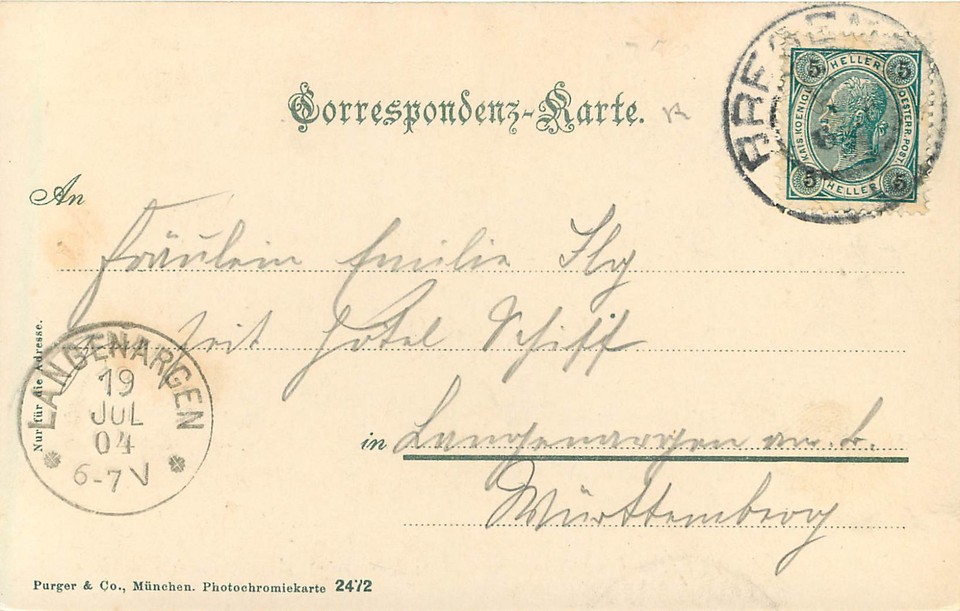 Correspondenz-Karte.
5 HELLER 5
KAIS. KOENIGL. OESTERR. POST.
5 HELLER 5
An
Fräulein Emilie Ilg
Zeit Hôtel Schiff
in Langenargen am B.
Württemberg
LANGENARGEN
19
JUL
04
6-7 V
Nur für die Adresse.
Purger & Co., München. Photochromiekarte 2472